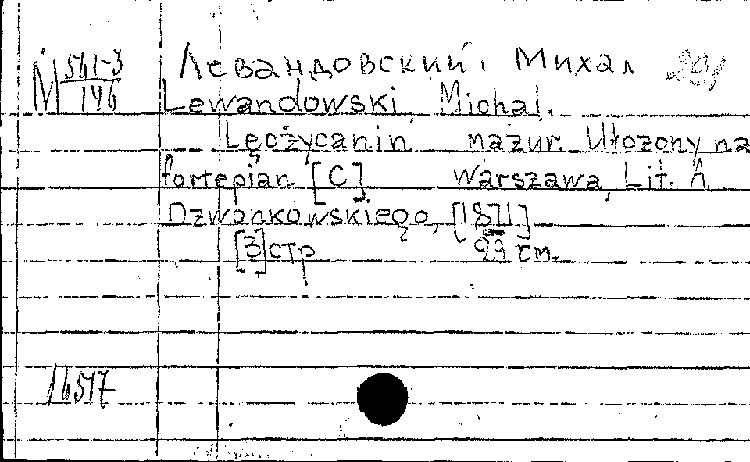 М 561-3/146 Левандовский, Михал 291
Lewandowski, Michał.
Łęczycanin mazur. Ułożony na
fortepian [C] Warszawa, Lit. A.
Dzwonkowskiego, [1871]
[3] стр 33 см.
16517